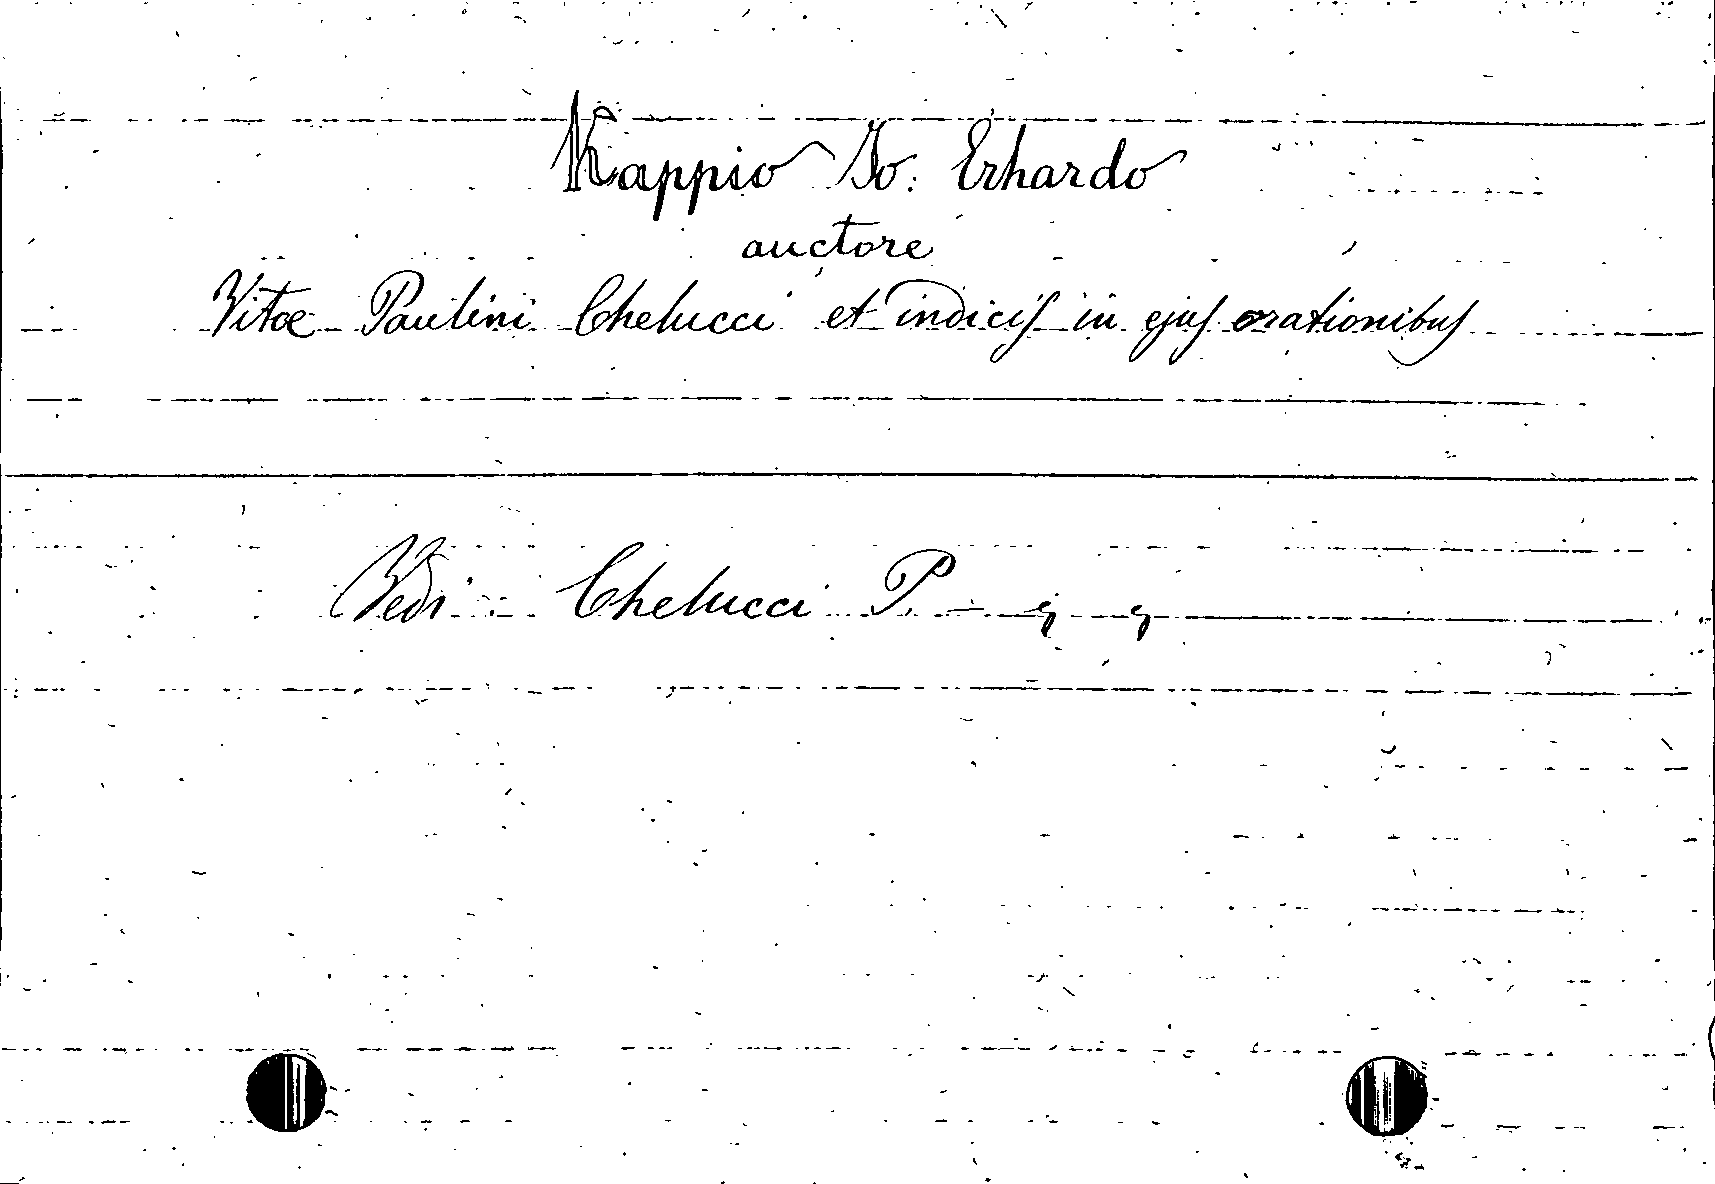 Kappio Jo: Erhardo
auctore
Vitæ Paulini Chelucci et indicis in ejus orationibus
Vedi: Chelucci P. — " "